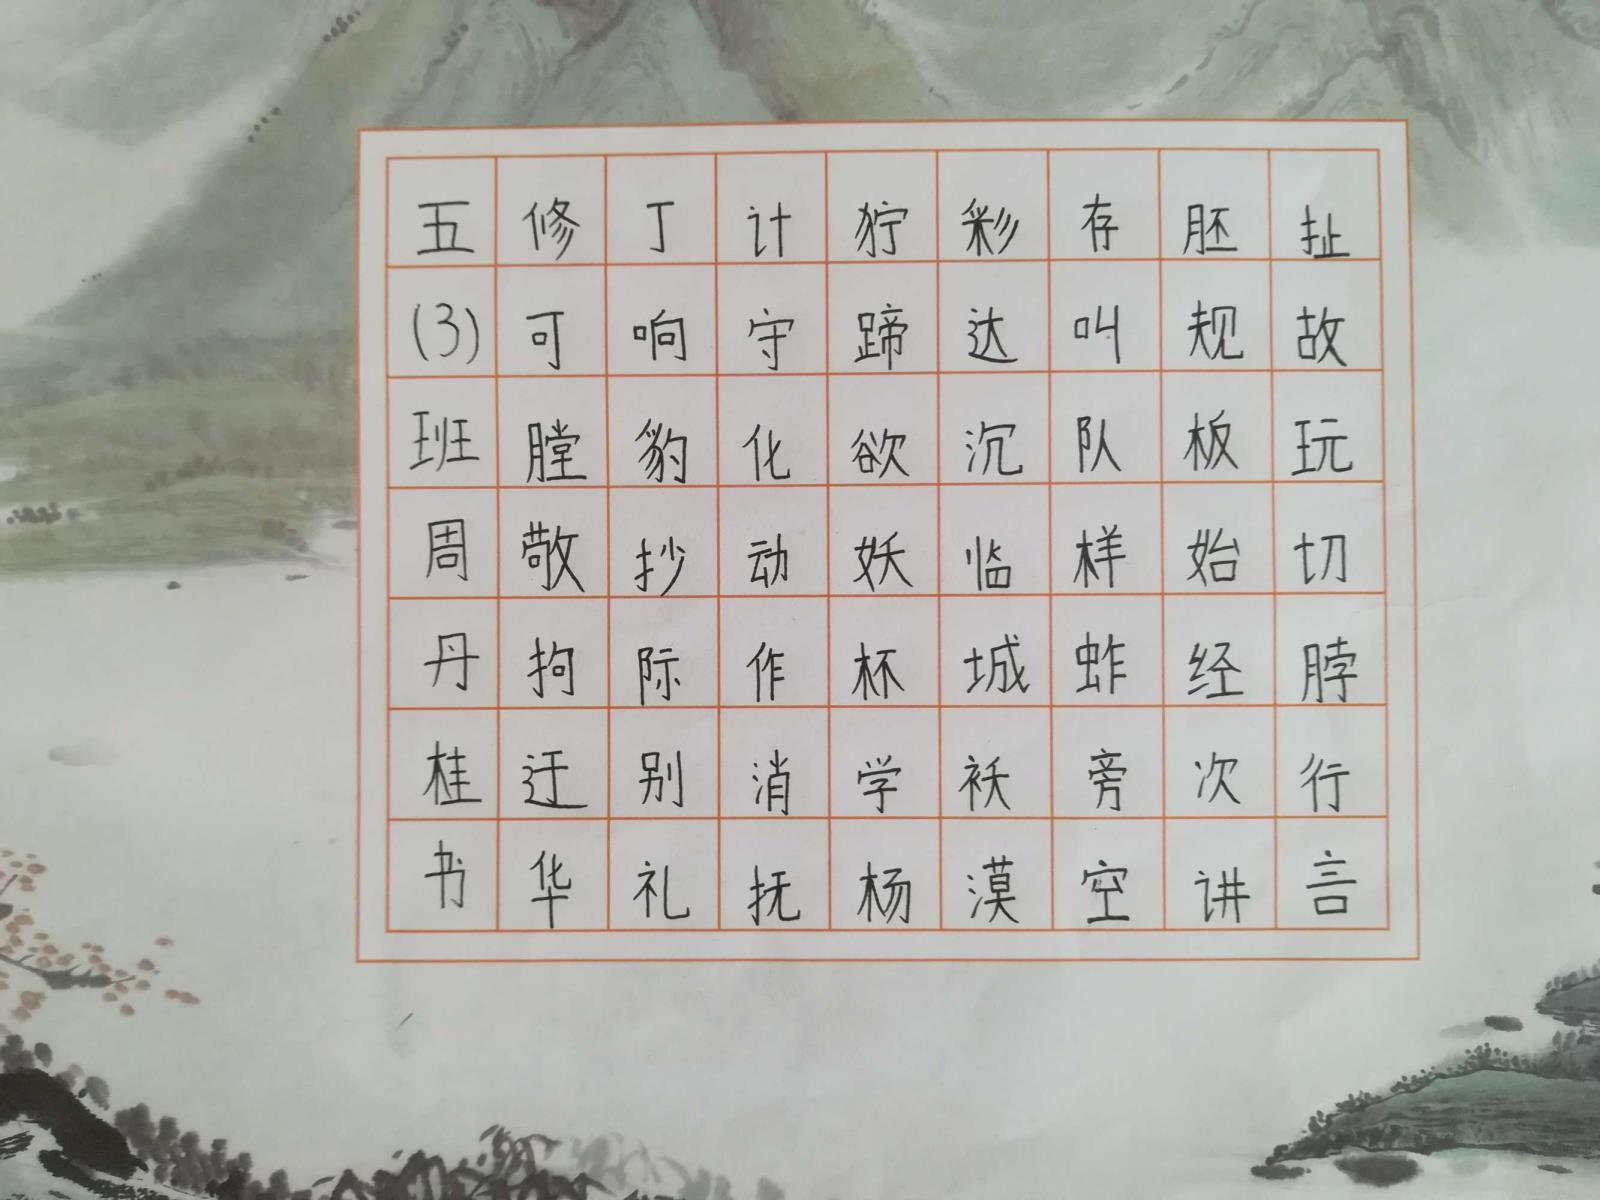 扯故玩切脖行言
胚规板始经次讲
存叫队样蚱旁空
彩达沉临城袄漠
狞蹄欲妖杯学杨
计守化动作消抚
丁响豹抄际别礼
修可膛敬拘迂华
五(3)班周丹桂书